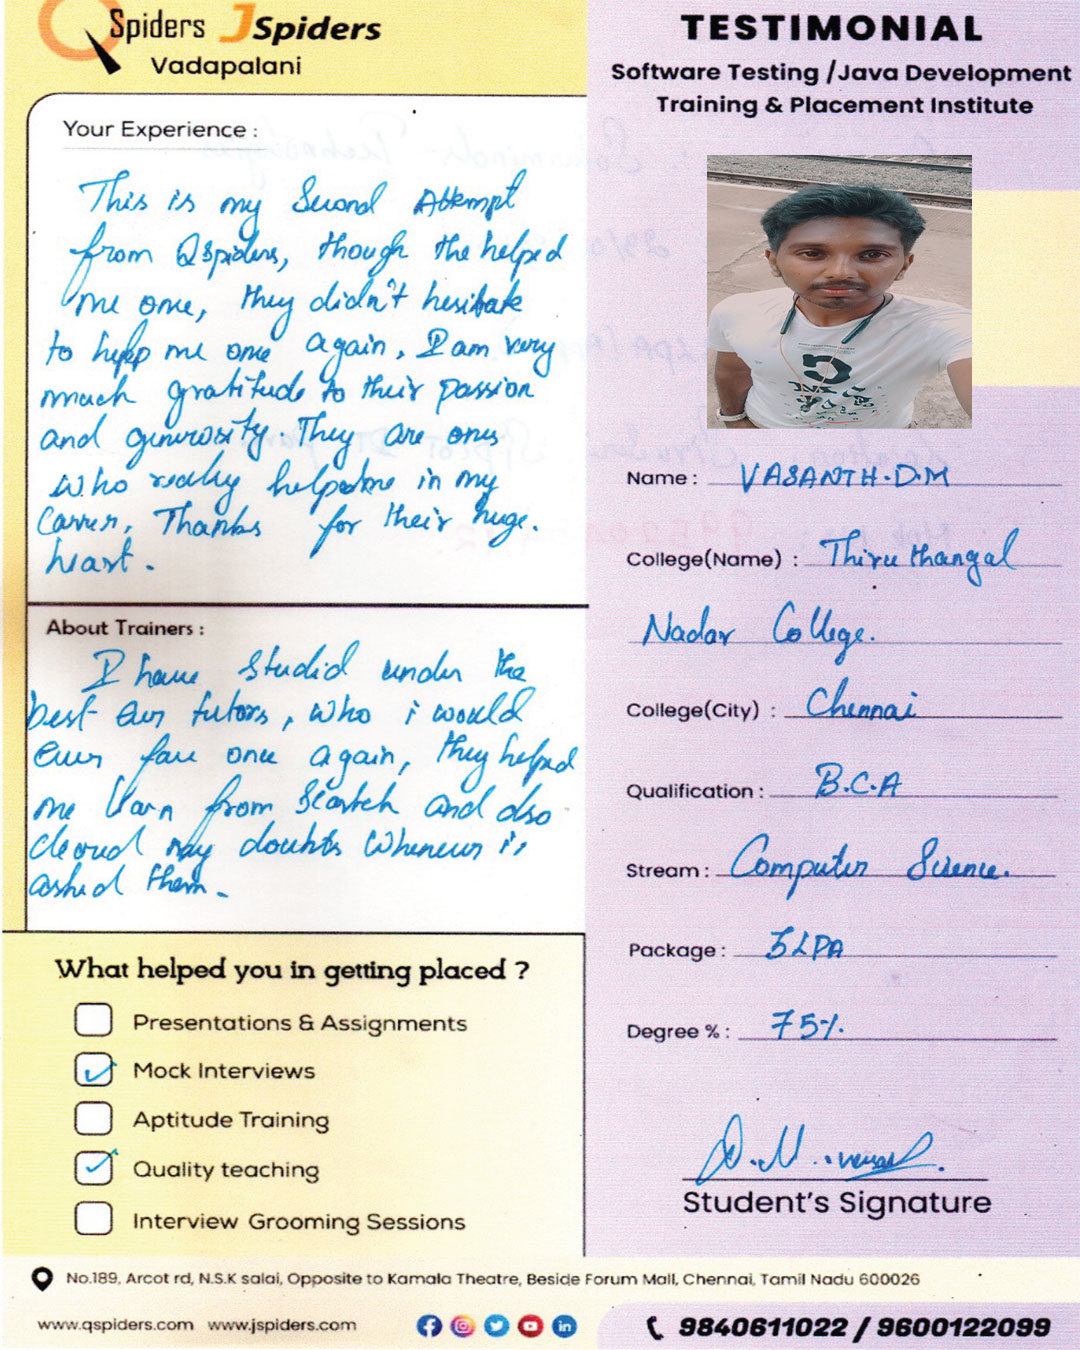 QSpiders JSpiders
Vadapalani
Your Experience :
This is my Second Attempt
from Qspiders, though the helped
me one, they didn't hesitate
to help me one again, I am very
much gratitude to their passion
and generosity. They are ones
who really helped me in my
Carrer, Thanks for their huge.
heart.
About Trainers :
I have Studied under the
best Ever tutors, who i would
Ever face once again, they helped
me learn from Scratch and also
cleared my doubts Whenever i
asked them.
What helped you in getting placed ?
Presentations & Assignments
Mock Interviews
Aptitude Training
Quality teaching
Interview Grooming Sessions
TESTIMONIAL
Software Testing /Java Development
Training & Placement Institute
Name : VASANTH.D.M
College(Name) : Thiruthangal
Nadar College.
College(City) : Chennai
Qualification : B.C.A
Stream : Computer Science.
Package : 3LPA
Degree % : 75%.
Student's Signature
No.189, Arcot rd, N.S.K salai, Opposite to Kamala Theatre, Beside Forum Mall, Chennai, Tamil Nadu 600026
www.qspiders.com www.jspiders.com
9840611022 / 9600122099